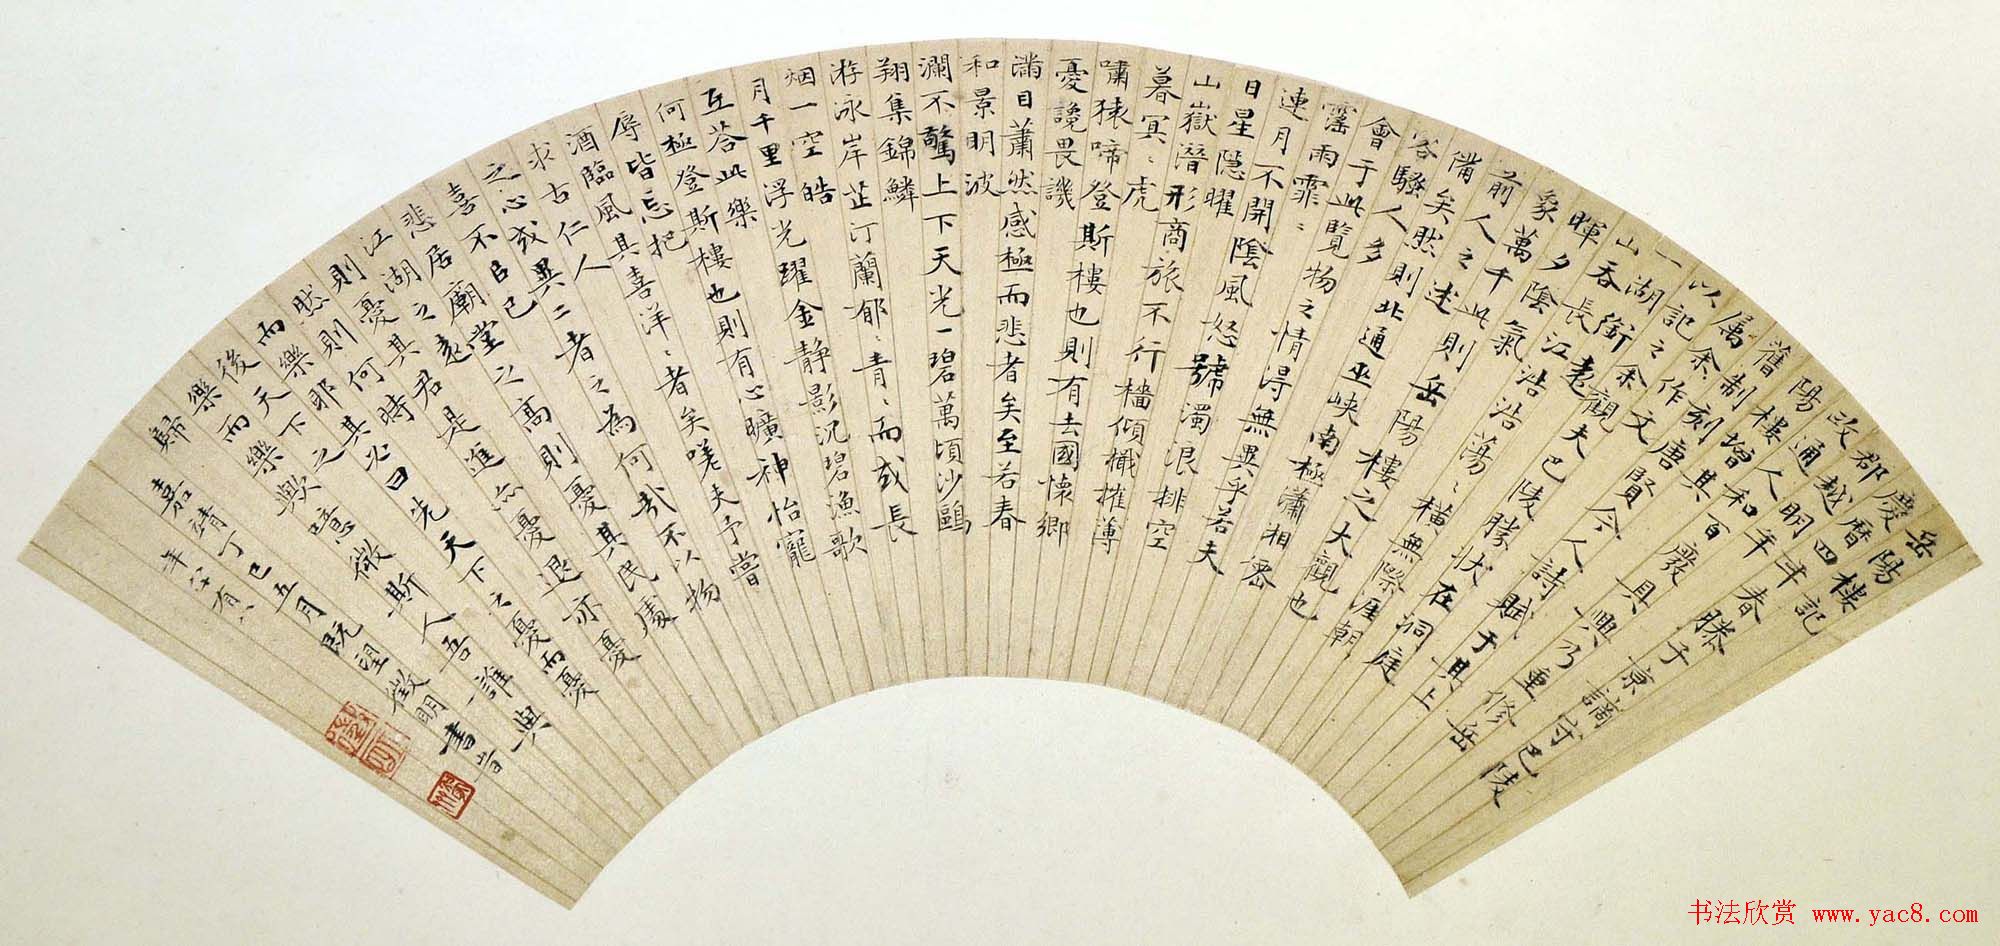 岳陽樓記
慶曆四年春滕子京謫守巴陵
郡越明年
政通人和百廢具興乃重修岳
陽樓增其
舊制刻唐賢今人詩賦于其上
屬余作文
以記之余觀夫巴陵勝狀在洞庭
一湖銜遠
山吞長江浩浩蕩〻橫無際涯朝
暉夕陰氣
象萬千此則岳陽樓之大觀也
前人之述
備矣然則北通巫峽南極瀟湘遷
客騷人多
會于此覽物之情得無異乎若夫
霪雨霏〻
連月不開陰風怒號濁浪排空
日星隱曜
山嶽潛形商旅不行檣傾檝摧薄
暮冥〻虎
嘯猿啼登斯樓也則有去國懷鄉
憂讒畏譏
滿目蕭然感極而悲者矣至若春
和景明波
瀾不驚上下天光一碧萬頃沙鷗
翔集錦鱗
游泳岸芷汀蘭郁〻青〻而或長
烟一空皓
月千里浮光躍金静影沉碧漁歌
互荅此樂
何極登斯樓也則有心曠神怡寵
辱皆忘把
酒臨風其喜洋〻者矣嗟夫予嘗
求古仁人
之心或異二者之為何哉不以物
喜不㠯己
悲居廟堂之高則憂其民處
江湖之遠
則憂其君是進亦憂退亦憂
然則何時
而樂耶其必曰先天下之憂而憂
後天下之
樂而樂歟噫微斯人吾誰與
歸
嘉靖丁巳五月既望徵明書旹
年八十有八
书法欣赏 www.yac8.com